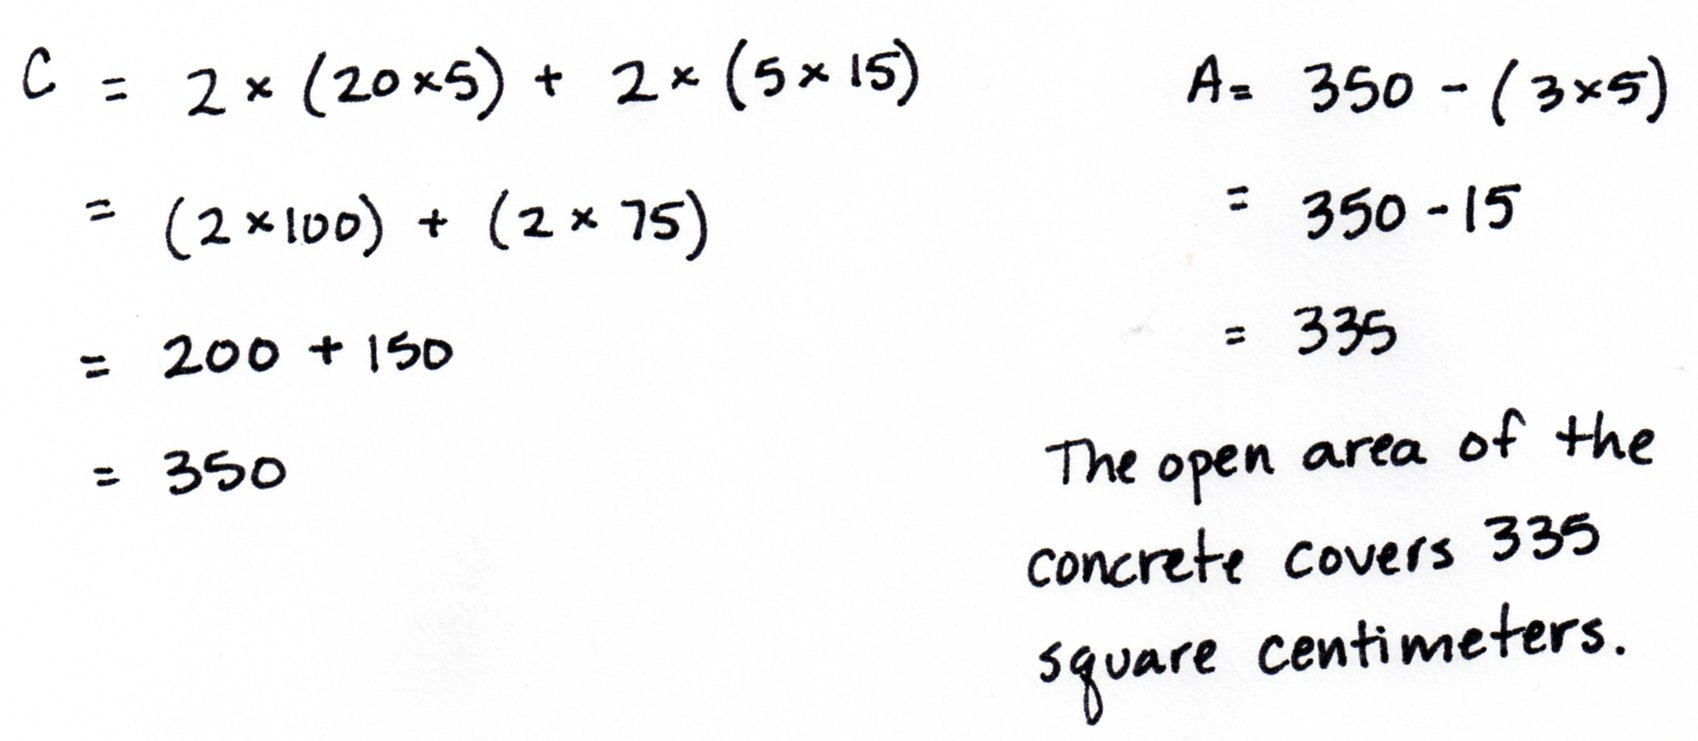 C = 2 × (20×5) + 2 × (5 × 15)
= (2×100) + (2 × 75)
= 200 + 150
= 350
A = 350 - (3×5)
= 350 - 15
= 335
The open area of the
concrete covers 335
square centimeters.